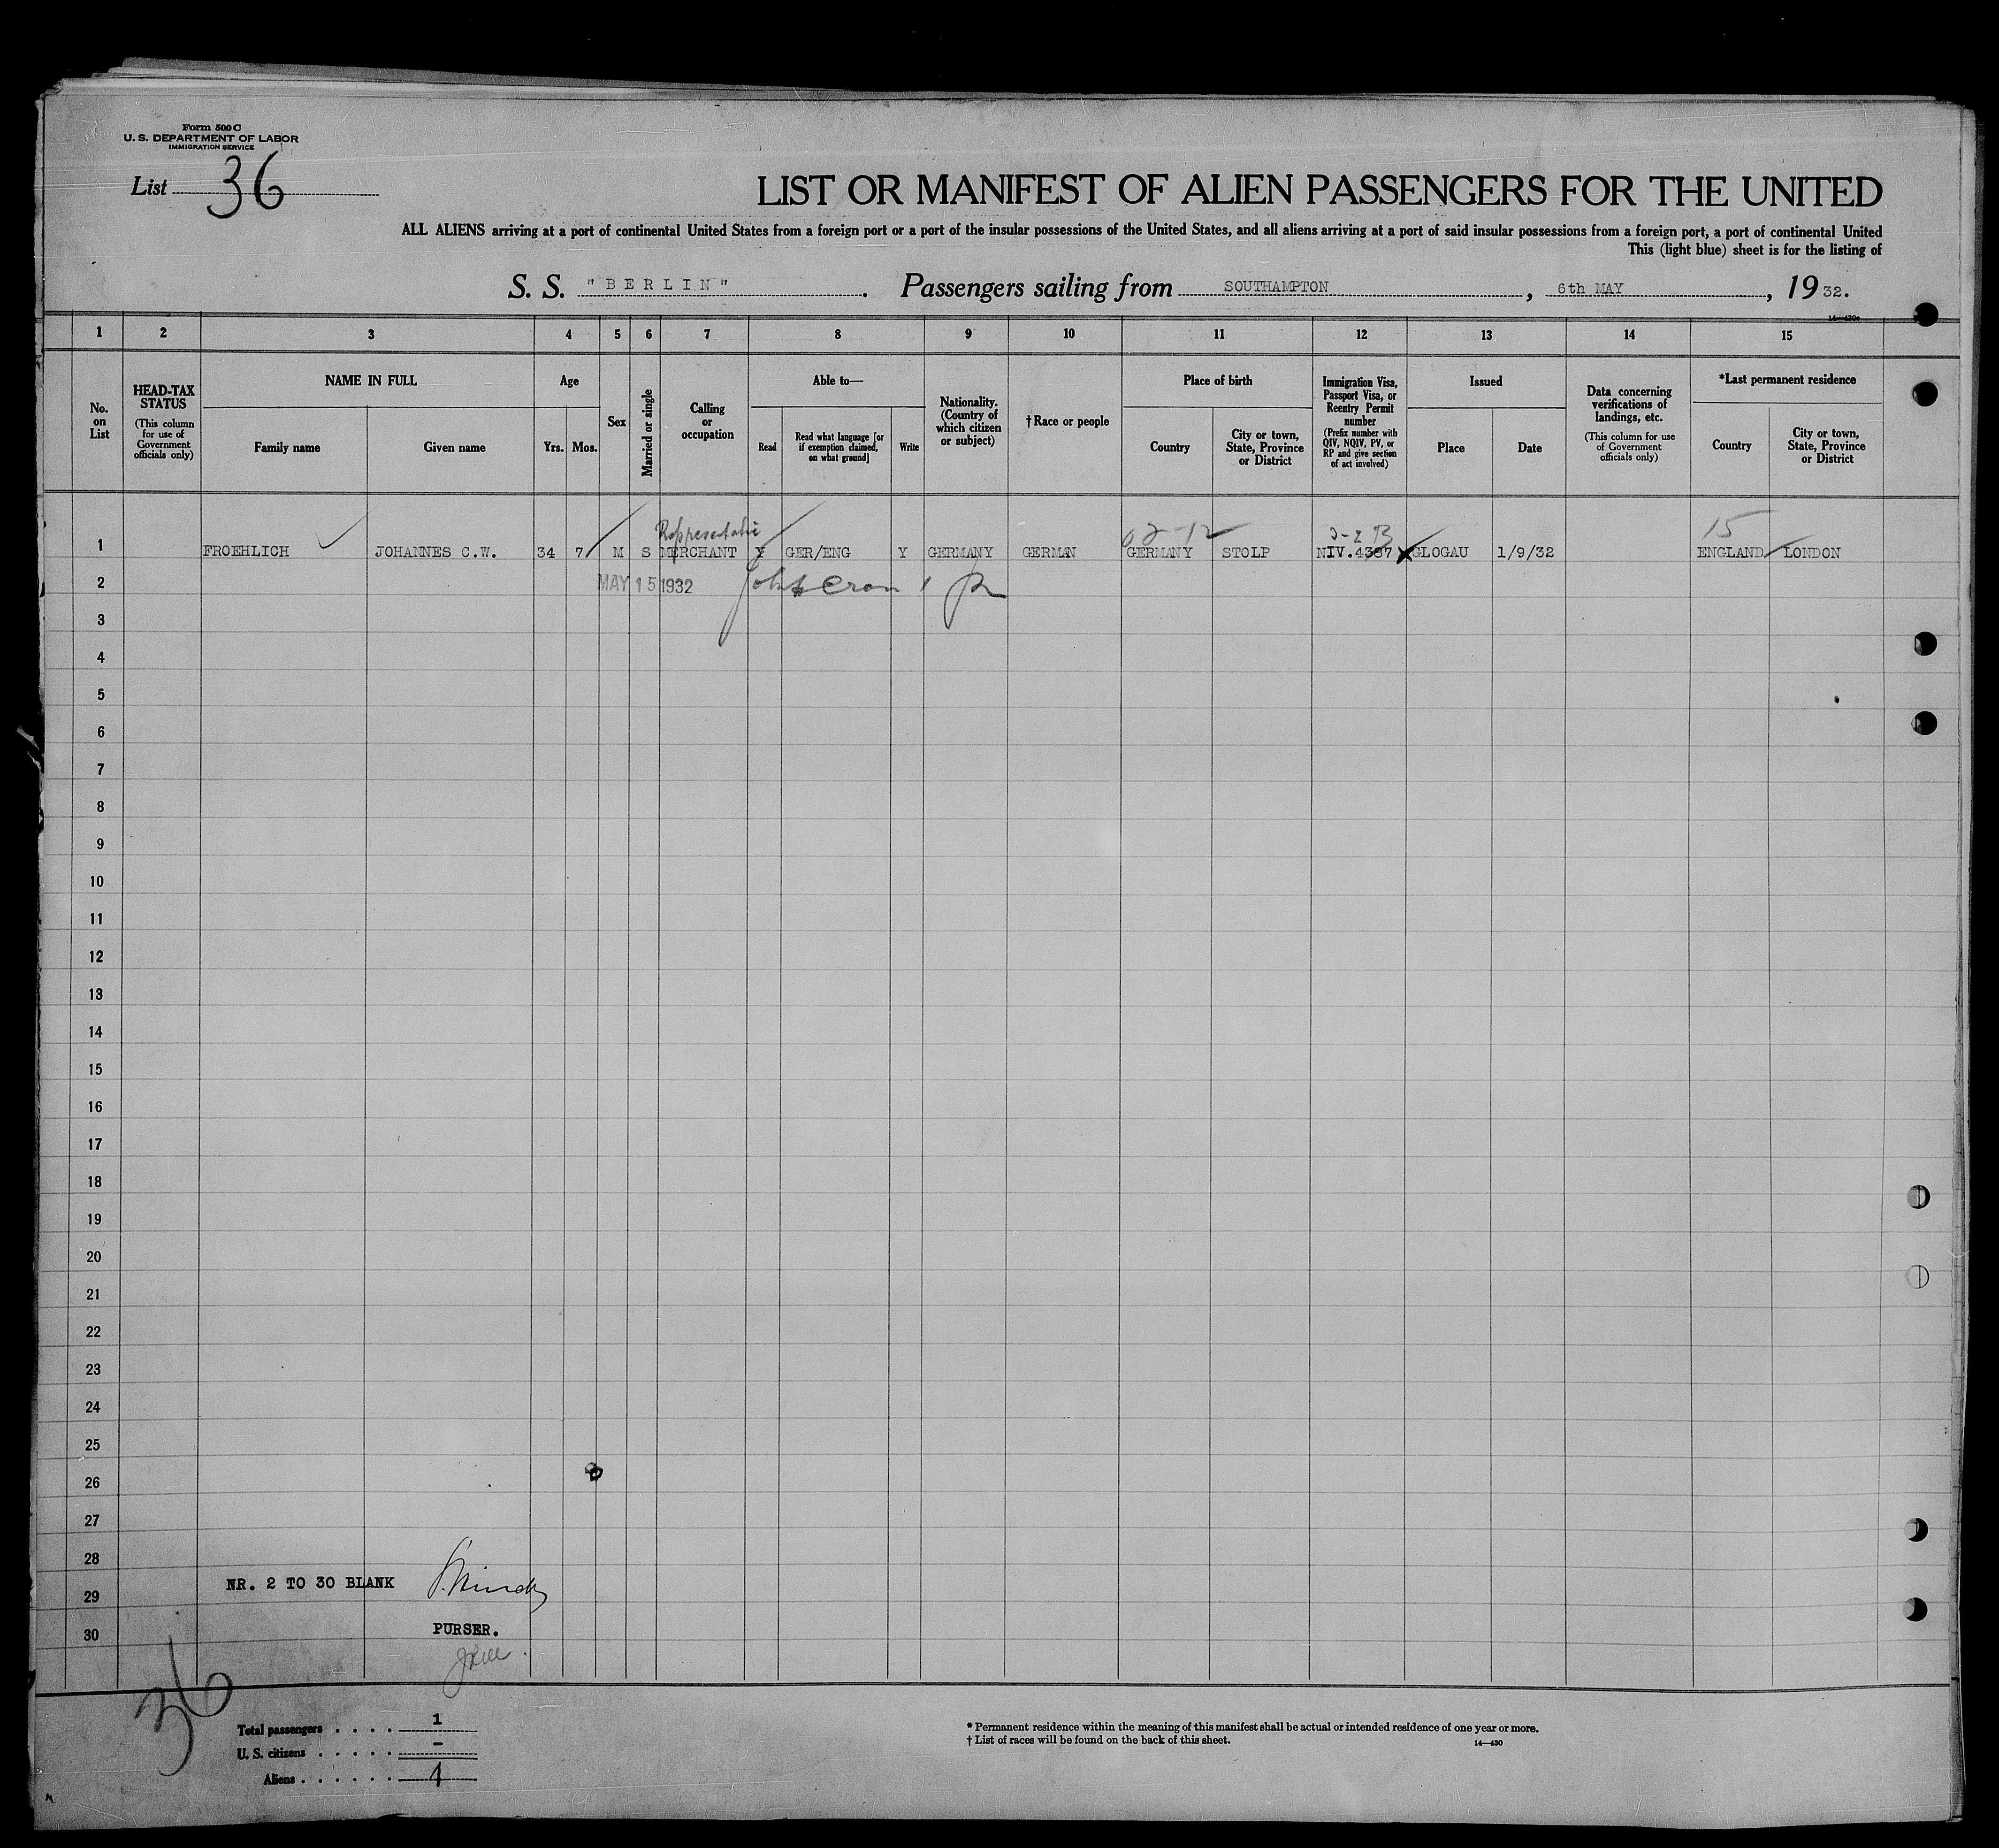 Form 500 C
U. S. DEPARTMENT OF LABOR
IMMIGRATION SERVICE
List 36
LIST OR MANIFEST OF ALIEN PASSENGERS FOR THE UNITED
ALL ALIENS arriving at a port of continental United States from a foreign port or a port of the insular possessions of the United States, and all aliens arriving at a port of said insular possessions from a foreign port, a port of continental United
This (light blue) sheet is for the listing of
S. S. "BERLIN". Passengers sailing from SOUTHAMPTON, 6th MAY, 19 32.
14—430
1 2 3 4 5 6 7 8 9 10 11 12 13 14 15
No. on List
HEAD-TAX STATUS
(This column for use of Government officials only)
NAME IN FULL
Family name
Given name
Age
Yrs. Mos.
Sex
Married or single
Calling or occupation
Able to—
Read
Read what language [or if exemption claimed, on what ground]
Write
Nationality. (Country of which citizen or subject)
†Race or people
Place of birth
Country
City or town, State, Province or District
Immigration Visa, Passport Visa, or Reentry Permit number
(Prefix number with QIV, NQIV, PV, or RP and give section of act involved)
Issued
Place
Date
Data concerning verifications of landings, etc.
(This column for use of Government officials only)
*Last permanent residence
Country
City or town, State, Province or District
Representative
15
1 FROEHLICH JOHANNES C.W. 34 7 M S MERCHANT Y GER/ENG Y GERMANY GERMAN GERMANY STOLP NIV.4387 GLOGAU 1/9/32 ENGLAND LONDON
2 MAY 15 1932
3
4
5
6
7
8
9
10
11
12
13
14
15
16
17
18
19
20
21
22
23
24
25
26
27
28
NR. 2 TO 30 BLANK
29
PURSER.
30
36
Total passengers . . . . 1
U. S. citizens . . . . . -
Aliens . . . . . . 1
* Permanent residence within the meaning of this manifest shall be actual or intended residence of one year or more.
† List of races will be found on the back of this sheet.
14—430